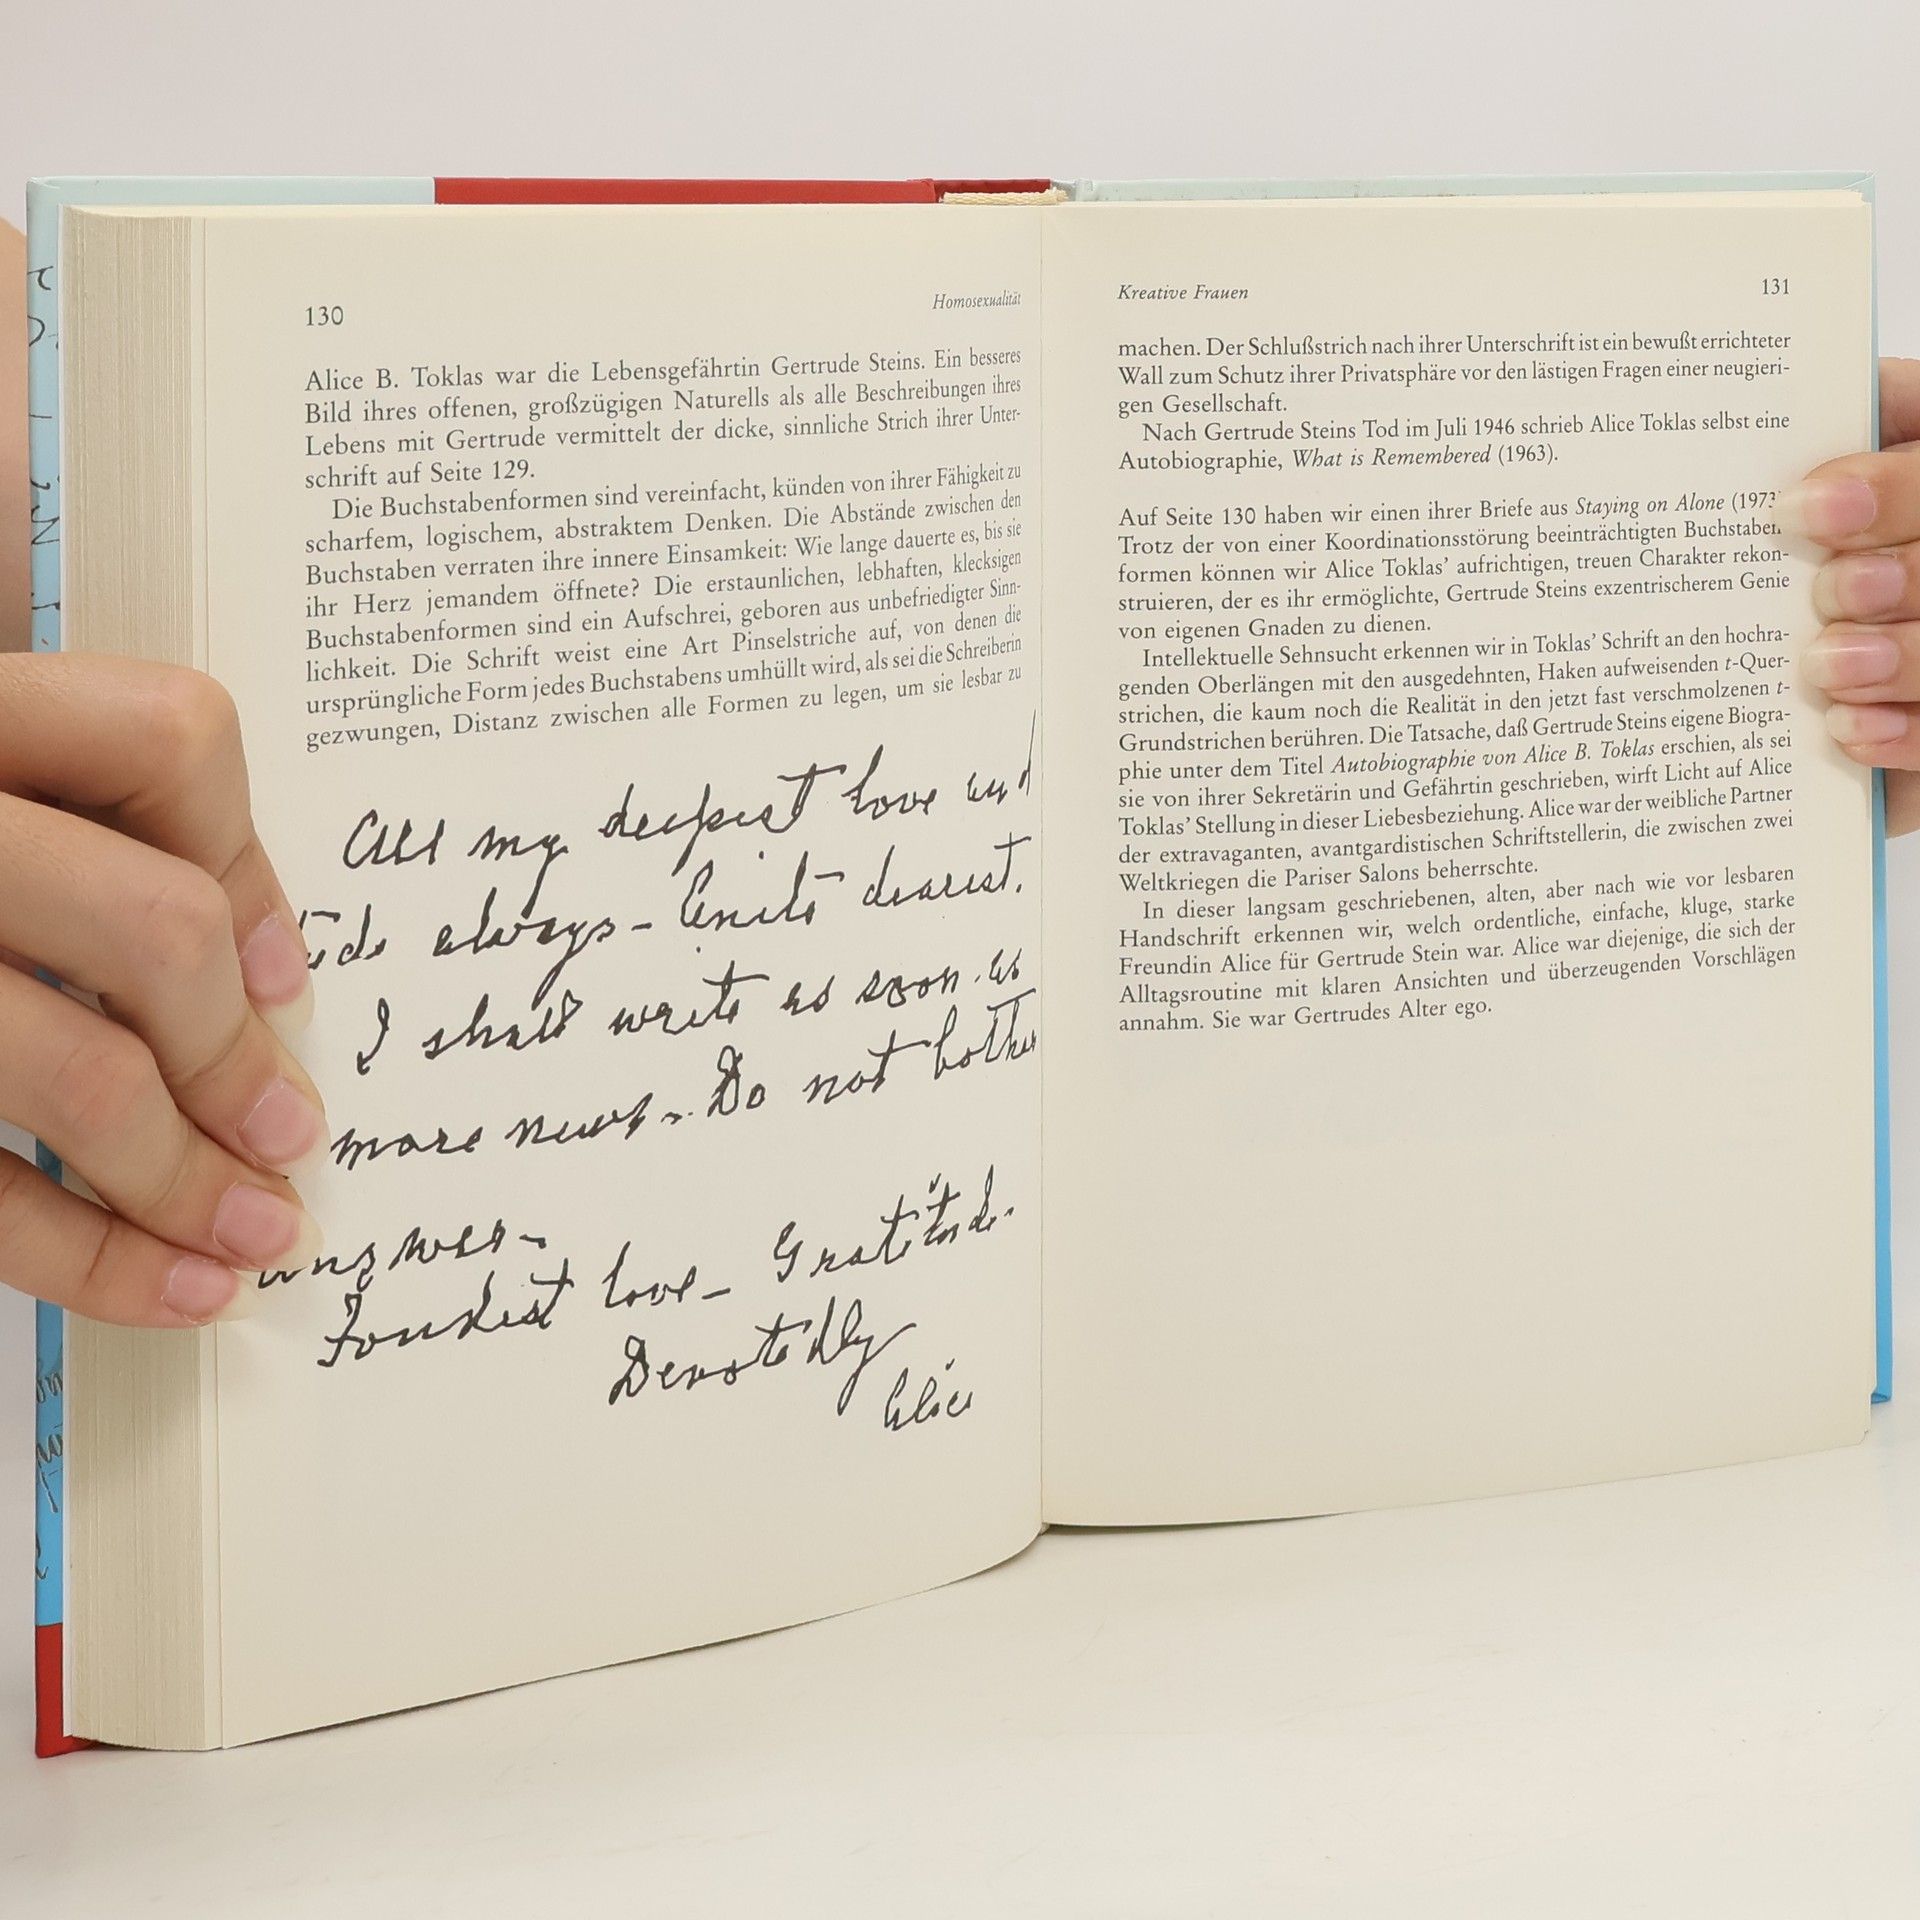 130
Homosexualität
Alice B. Toklas war die Lebensgefährtin Gertrude Steins. Ein besseres
Bild ihres offenen, großzügigen Naturells als alle Beschreibungen ihres
Lebens mit Gertrude vermittelt der dicke, sinnliche Strich ihrer Unter-
schrift auf Seite 129.
Die Buchstabenformen sind vereinfacht, künden von ihrer Fähigkeit zu
scharfem, logischem, abstraktem Denken. Die Abstände zwischen den
Buchstaben verraten ihre innere Einsamkeit: Wie lange dauerte es, bis sie
ihr Herz jemandem öffnete? Die erstaunlichen, lebhaften, klecksigen
Buchstabenformen sind ein Aufschrei, geboren aus unbefriedigter Sinn-
lichkeit. Die Schrift weist eine Art Pinselstriche auf, von denen die
ursprüngliche Form jedes Buchstabens umhüllt wird, als sei die Schreiberin
gezwungen, Distanz zwischen alle Formen zu legen, um sie lesbar zu
All my deepest love and
always – dearest.
I shall write as soon as
more news – Do not bother
answer –
Fondest love – Gratitude.
Devotedly
Alice
Kreative Frauen
131
machen. Der Schlußstrich nach ihrer Unterschrift ist ein bewußt errichteter
Wall zum Schutz ihrer Privatsphäre vor den lästigen Fragen einer neugieri-
gen Gesellschaft.
Nach Gertrude Steins Tod im Juli 1946 schrieb Alice Toklas selbst eine
Autobiographie, What is Remembered (1963).
Auf Seite 130 haben wir einen ihrer Briefe aus Staying on Alone (1973)
Trotz der von einer Koordinationsstörung beeinträchtigten Buchstaben
formen können wir Alice Toklas' aufrichtigen, treuen Charakter rekon-
struieren, der es ihr ermöglichte, Gertrude Steins exzentrischerem Genie
von eigenen Gnaden zu dienen.
Intellektuelle Sehnsucht erkennen wir in Toklas' Schrift an den hochra-
genden Oberlängen mit den ausgedehnten, Haken aufweisenden t-Quer-
strichen, die kaum noch die Realität in den jetzt fast verschmolzenen t-
Grundstrichen berühren. Die Tatsache, daß Gertrude Steins eigene Biogra-
phie unter dem Titel Autobiographie von Alice B. Toklas erschien, als sei
sie von ihrer Sekretärin und Gefährtin geschrieben, wirft Licht auf Alice
Toklas' Stellung in dieser Liebesbeziehung. Alice war der weibliche Partner
der extravaganten, avantgardistischen Schriftstellerin, die zwischen zwei
Weltkriegen die Pariser Salons beherrschte.
In dieser langsam geschriebenen, alten, aber nach wie vor lesbaren
Handschrift erkennen wir, welch ordentliche, einfache, kluge, starke
Freundin Alice für Gertrude Stein war. Alice war diejenige, die sich der
Alltagsroutine mit klaren Ansichten und überzeugenden Vorschlägen
annahm. Sie war Gertrudes Alter ego.